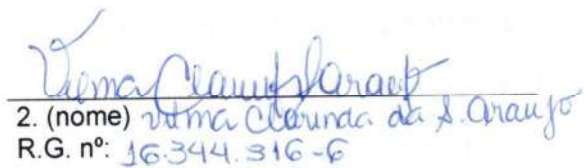 Vilma Clarinda Araujo
2. (nome) Vilma Clarinda da S. Araujo
R.G. nº: 16.344.316-6